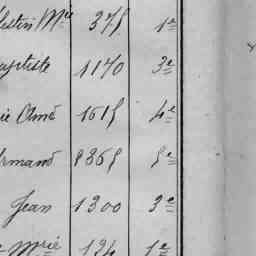 lestin Mie 375 1e
aptiste 1170 3e
ie Aimé 1615 4e
Armand 8365 5e
Jean 1300 3e
Mrie 134 1e